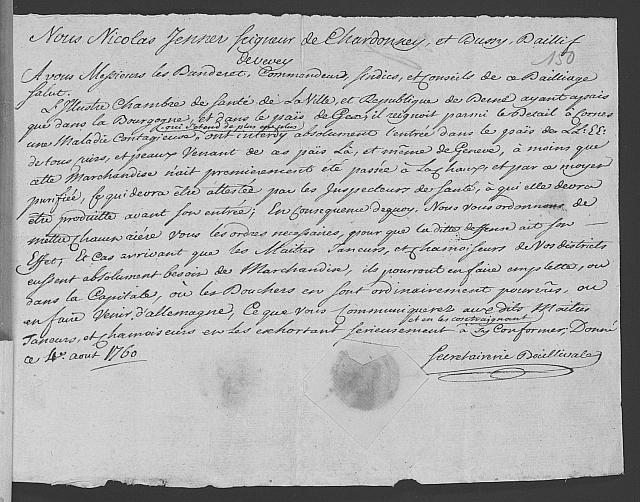 Nous Nicolas Jenner Seigneur de Chardonney, et Bussy, Baillif
de Vevey
150
A vous Messieurs les Banderet, Commandeur, Sindics, et Conseils de ce Bailliage
Salut.
L'Illustre Chambre de Santé de La Ville, et Republique de Berne ayant apris
que dans la Bourgogne, et dans le païs de Gex, il regnoit parmi le betail à Cornes
qui s'etend de plus en plus
une Maladie Contagieuse, ont interdy absolument l'entrée dans le païs de LL. EE.
de tous cuirs, et peaux Venant de ces païs là, et même de Geneve, à moins que
cette Marchandise n'ait premierement été passée à La Chaux, et par ce moyen
purifiée, Ce qui devra être attestée par les Inspecteurs de Santé, à qui elle devra
être produitte avant son entrée; En Consequence dequoy, Nous vous ordonnons de
mettre Chacun riére vous les ordres necessaires, pour que la ditte deffense ait son
Effet; Et cas arrivant que les Maitres Taneurs, et chamoiseurs de Vos districts
eussent absolument besoin de Marchandise, ils pourront en faire emplette, ou
dans la Capitale, où les Bouchers en sont ordinairement pourvûs, ou
en faire Venir d'allemagne, Ce que vous communiquerez aux dits Maitres
et en les contraignant
Taneurs, et Chamoiseurs en les exhortant serieusement à s'y Conformer, Donné
ce 4e. aout 1760
Secretairerie Baillivale